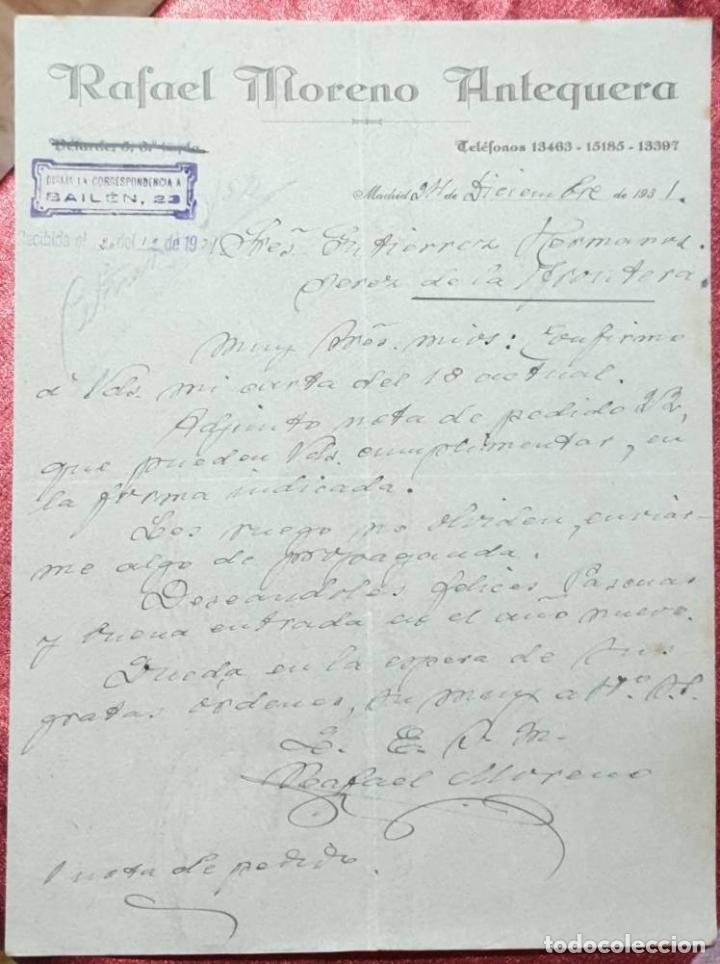 Rafael Moreno Antequera
Velarde, 8, 3º
Teléfonos 13463 - 15185 - 13397
DIRIJAN LA CORRESPONDENCIA A
BAILÉN, 23
Madrid 24 de Diciembre de 1931.
Recibida el del 12 de 1931
Sres Gutierrez Hermanos.
Jerez de la Frontera.
Muy Sres. mios: Confirmo
á Vds. mi carta del 18 actual.
Adjunto nota de pedido 22,
que pueden Vds. cumplimentar, en
la forma indicada.
Les ruego no olviden, enviar-
me algo de propaganda.
Deseandoles felices Pascuas
y buena entrada en el año nuevo.
Queda en la espera de sus
gratas órdenes, su muy a
Q. E. S. M.
Rafael Moreno
1 nota de pedido.
todocoleccion